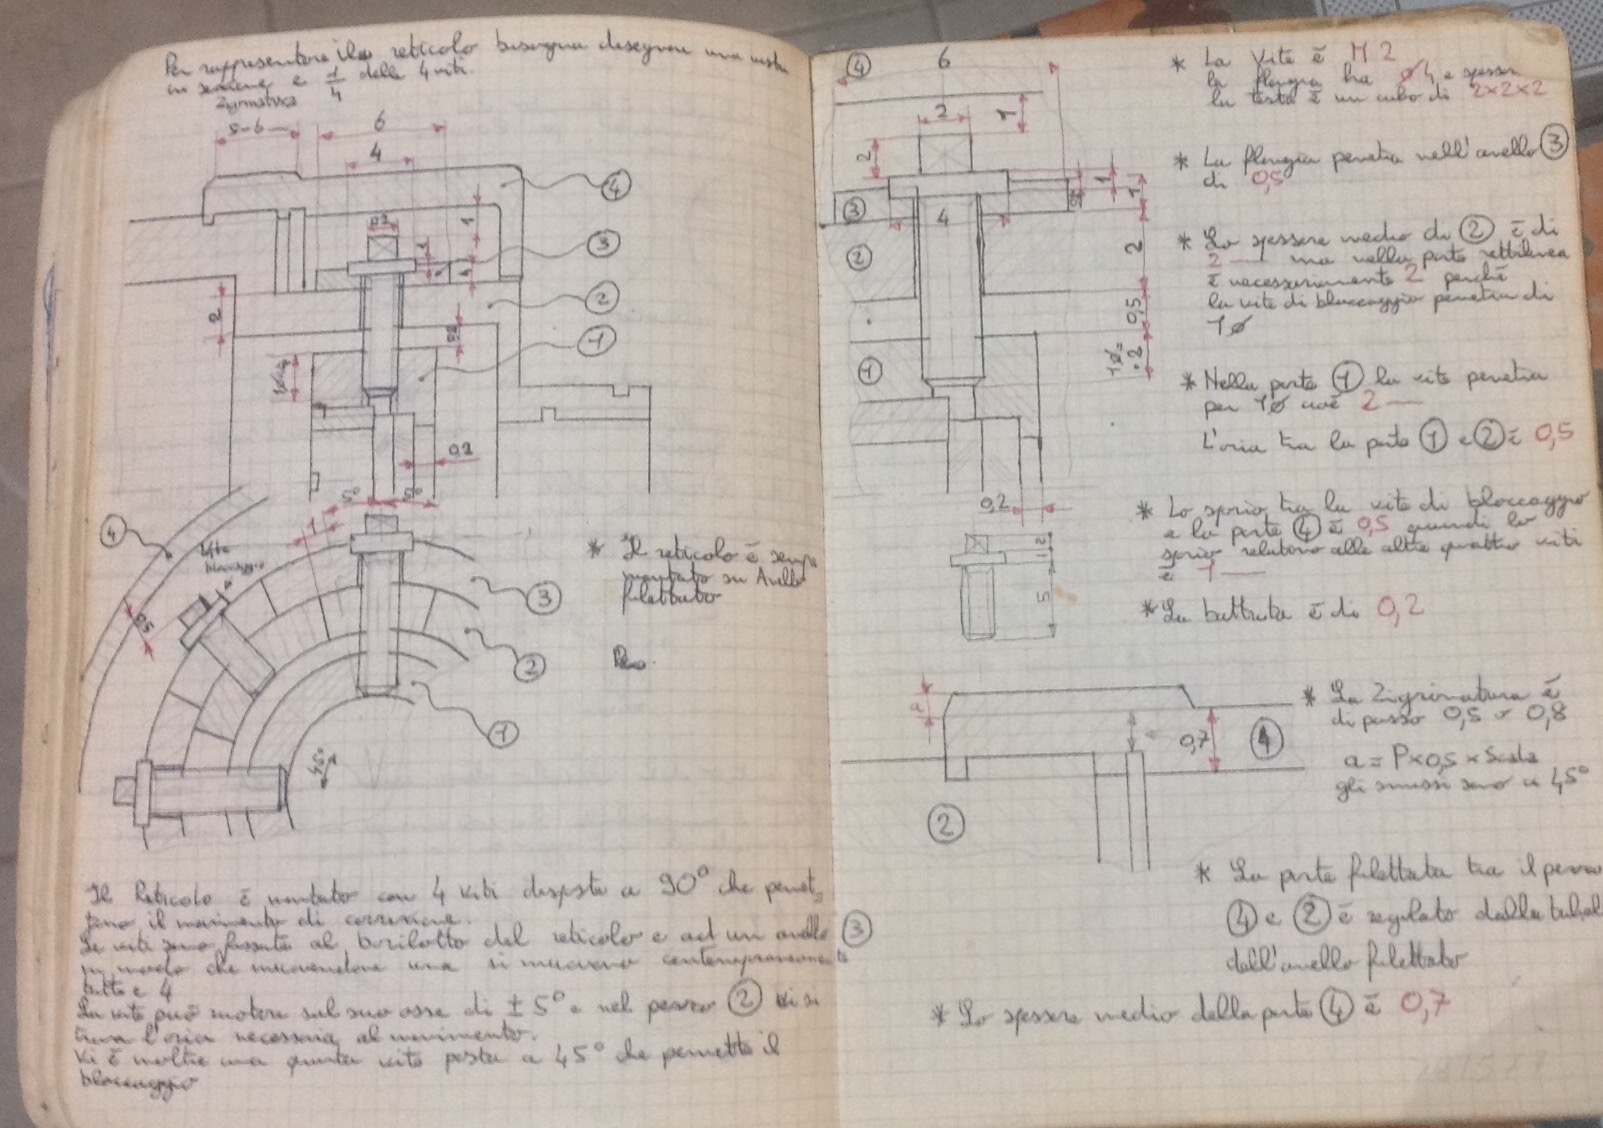 Per rappresentare il reticolo bisogna disegnare una vista
in sezione e 1/4 delle 4 viti.
Zigrinatura
5-6
6
4
0,2
1
1
2
0,2
1ø=2
0,2
4
3
2
1
5° 5°
1
4
Vite
bloccaggio
0,5
3
2
1
45°
* Il reticolo è sempre
montato su Anello
filettato
Il Reticolo è montato con 4 viti disposte a 90° che permet-
tono il movimento di correzione.
Le viti sono fissate al barilotto del reticolo e ad un anello 3
in modo che muovendone una si muovono contemporaneamente
tutte e 4
La vite può ruotare sul suo asse di ± 5° e nel perno 2 vi si
trova l'aria necessaria al movimento.
Vi è inoltre una quinta vite posta a 45° che permette il
bloccaggio
4
6
2
1
2
3
4
2
1
1
2
0,5
1ø=2
1
0,2
2
1
5
* La Vite è M 2
la flangia ha ø 4 e spessore
la testa è un cubo di 2×2×2
* La flangia penetra nell'anello 3
di 0,5
* Lo spessore medio di 2 è di
2 — ma nella parte rettilinea
è necessariamente 2 perchè
la vite di bloccaggio penetra di
1ø
* Nella parte 1 la vite penetra
per 1ø cioè 2 —
L'aria tra la parte 1 e 2 è 0,5
* Lo spazio tra la vite di bloccaggio
e la parte 4 è 0,5 quindi lo
spazio relativo alle altre quattro viti
è 1 —
* La battuta è di 0,2
a
0,7
4
2
* La Zigrinatura è
di passo 0,5 o 0,8
a = P×0,5 × Scala
gli smussi sono a 45°
* La parte filettata tra il perno
4 e 2 è regolato dalla
dell'anello filettato
* Lo spessore medio della parte 4 è 0,7